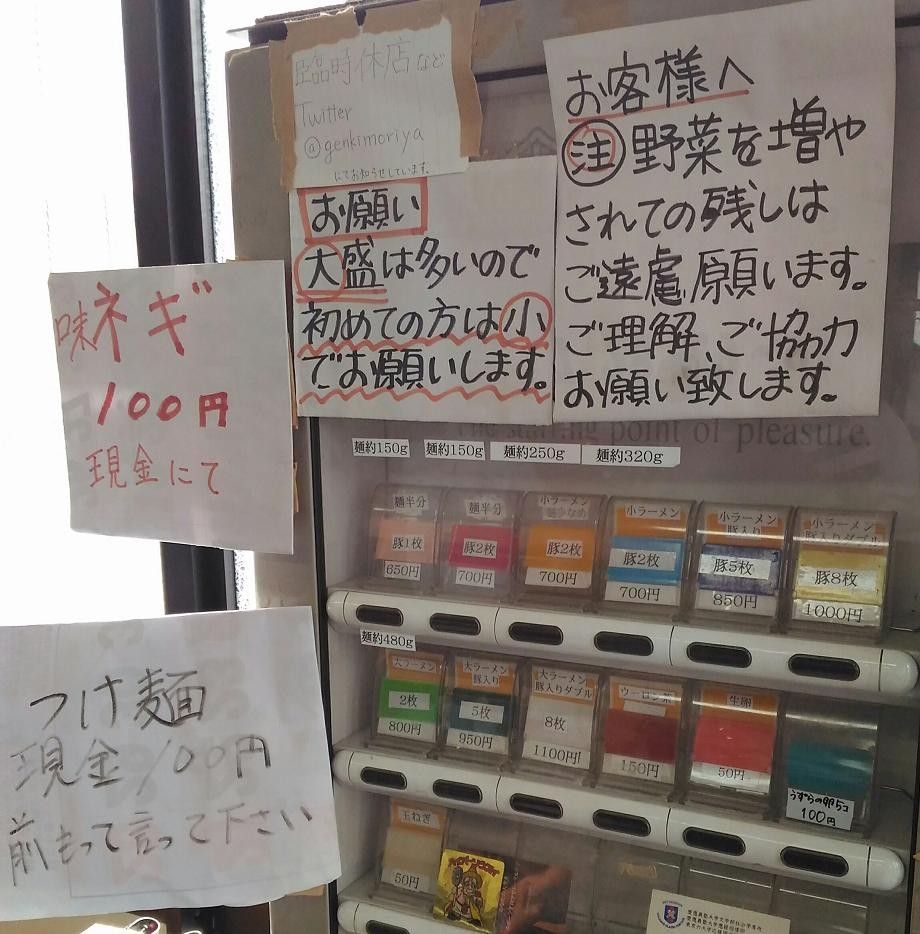 臨時休店など
Twitter
@genkimoriya
にてお知らせしています。
お願い
大盛は多いので
初めての方は小
でお願いします。
お客様へ
注 野菜を増や
されての残しは
ご遠慮願います。
ご理解、ご協力
お願い致します。
味ネギ
100円
現金にて
つけ麺
現金100円
前もって言って下さい
The starting point of pleasure.
麺約150g
麺約150g
麺約250g
麺約320g
麺半分
豚1枚
650円
麺半分
豚2枚
700円
小ラーメン
麺少なめ
豚2枚
700円
小ラーメン
豚2枚
700円
小ラーメン
豚入り
豚5枚
850円
小ラーメン
豚入りダブル
豚8枚
1000円
麺約480g
大ラーメン
2枚
800円
大ラーメン
豚入り
5枚
950円
大ラーメン
豚入りダブル
8枚
1100円
ウーロン茶
150円
生卵
50円
うずらの卵5コ
100円
玉ねぎ
50円